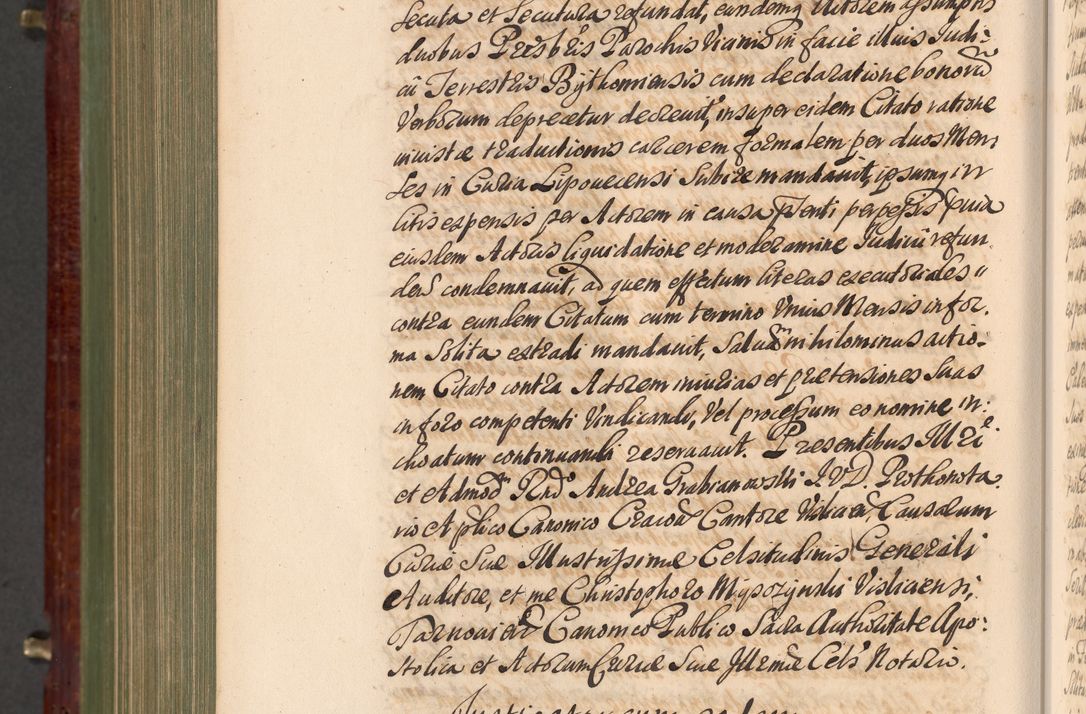 Secuta et Secutura refundat, eundemq Actorem assumptis
duobus Presbris Parochis Vicinis in facie illius Judi-
cii Terrestris Bythomiensis cum declaratione bonorũ
Verborum deprecetur decrevit, insuper eidem Citato ratione
traductionis carcerem formalem per duos Men-
ses in Curia Lipovecensi Subire mandavit, ipsumq in
litis expensis per Actorem in causa pñti perpessis pvia
eiusdem Actoris liquidatione et moderamine Judicii refun
deñ condemnavit, ad quem effectum literas executoriales
contra eundem Citatum cum termino Unius Mensis in for.
ma Solita extradi mandavit, Salvam nihilominus actio-
nem Citato contra Actorem iniurias et prætensiones Suas
in foro competenti Vindicandi, Vel processum eo nomine in-
choatum continuandi reservavit. Præsentibus Illri
et Admod Rñdo Andrea Grabianowski I.V.D. Prothonota
rio Aplico Canonico Cracov Cantore Causarum
Curiæ Suæ Illustrissimæ Celsitudinis Generali
Auditore, et me Christophoro Visliciensi,
Canonico Publico Sacra Authoritate Apo-
stolica et Actorum Curiæ Suæ Illrmæ Cels Notario.